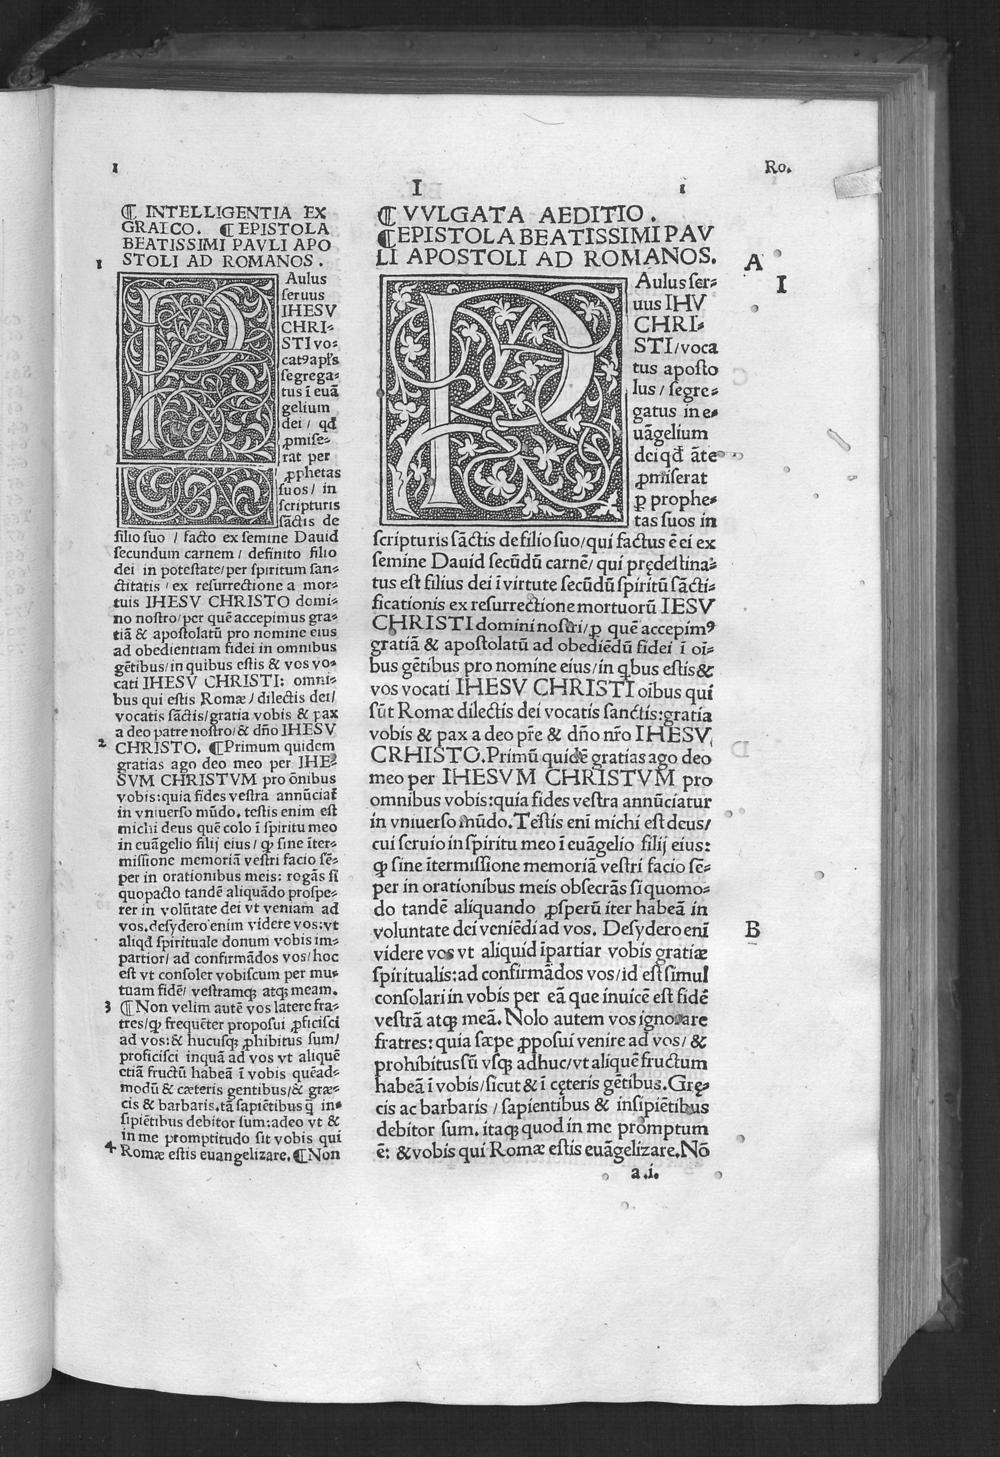 1
Ro.
I
1
¶ INTELLIGENTIA EX
GRAICO. ¶ EPISTOLA
BEATISSIMI PAVLI APO
1 STOLI AD ROMANOS.
PAulus
seruus
IHESV
CHRI-
STI vo-
catꝰ apl̃s
segrega-
tus ĩ euã
gelium
dei / qđ
ꝓmise-
rat per
ꝓphetas
suos / in
scripturis
sãctis de
filio suo / facto ex semine Dauid
secundum carnem / definito filio
dei in potestate / per spiritum san-
ctitatis / ex resurrectione a mor-
tuis IHESV CHRISTO domi-
no nostro / per quẽ accepimus gra-
tiã & apostolatũ pro nomine eius
ad obedientiam fidei in omnibus
gẽtibus / in quibus estis & vos vo-
cati IHESV CHRISTI: omni-
bus qui estis Romæ / dilectis dei /
vocatis sãctis / gratia vobis & pax
a deo patre nostro / & dño IHESV
2 CHRISTO. ¶ Primum quidem
gratias ago deo meo per IHE-
SVM CHRISTVM pro õnibus
vobis: quia fides vestra annũciat̃
in vniuerso mũdo. testis enim est
michi deus quẽ colo ĩ spiritu meo
in euãgelio filij eius / ꝙ sine ĩter-
missione memoriã vestri facio sẽ-
per in orationibus meis: rogãs si
quopacto tandẽ aliquãdo prospe-
rer in volũtate dei vt veniam ad
vos. desydero enim videre vos: vt
aliqđ spirituale donum vobis im-
partior / ad confirmãdos vos / hoc
est vt consoler vobiscum per mu-
tuam fidẽ / vestramꝗ atꝗ meam.
3 ¶ Non velim autẽ vos latere fra-
tres / ꝙ frequẽter proposui ꝓficisci
ad vos: & hucusꝗ ꝓhibitus sum /
proficisci inquã ad vos vt aliquẽ
etiã fructũ habeã ĩ vobis quẽad-
modũ & cæteris gentibus / & græ-
cis & barbaris. tã sapiẽtibus q̃ in-
sipiẽtibus debitor sum: adeo vt &
in me promptitudo sit vobis qui
4 Romæ estis euangelizare. ¶ Non
¶ VVLGATA AEDITIO.
¶ EPISTOLA BEATISSIMI PAV
LI APOSTOLI AD ROMANOS.
A
I
PAulus ser-
uus IHV
CHRI-
STI / voca
tus aposto
lus / segre-
gatus in e-
uãgelium
dei qđ ãte
ꝓmiserat
ꝑ prophe-
tas suos in
scripturis sãctis de filio suo / qui factus ẽ ei ex
semine Dauid secũdũ carnẽ / qui prędestina-
tus est filius dei ĩ virtute secũdũ spiritũ sãcti-
ficationis ex resurrectione mortuorũ IESV
CHRISTI domini nostri / ꝑ quẽ accepimꝰ
gratiã & apostolatũ ad obediẽdũ fidei ĩ oĩ-
bus gẽtibus pro nomine eius / in q̃bus estis &
vos vocati IHESV CHRISTI oĩbus qui
sũt Romæ dilectis dei vocatis sanctis: gratia
vobis & pax a deo pr̃e & dño nr̃o IHESV
CRHISTO. Primũ quidẽ gratias ago deo
meo per IHESVM CHRISTVM pro
omnibus vobis: quia fides vestra annũciatur
in vniuerso mũdo. Testis enĩ michi est deus /
cui seruio in spiritu meo ĩ euãgelio filij eius:
ꝙ sine ĩtermissione memoriã vestri facio sẽ-
per in orationibus meis obsecrãs si quomo-
do tandẽ aliquando ꝓsperũ iter habeã in
voluntate dei veniẽdi ad vos. Desydero enĩ
B
videre vos vt aliquid ĩpartiar vobis gratiæ
spiritualis: ad confirmãdos vos / id est simul
consolari in vobis per eã que inuicẽ est fidẽ
vestrã atꝗ meã. Nolo autem vos ignorare
fratres: quia sæpe ꝓposui venire ad vos / &
prohibitus sũ vsꝗ adhuc / vt aliquẽ fructum
habeã ĩ vobis / sicut & ĩ cęteris gẽtibus. Grę-
cis ac barbaris / sapientibus & insipiẽtibus
debitor sum. itaꝗ quod in me promptum
ẽ: & vobis qui Romæ estis euãgelizare. Nõ
a.i.